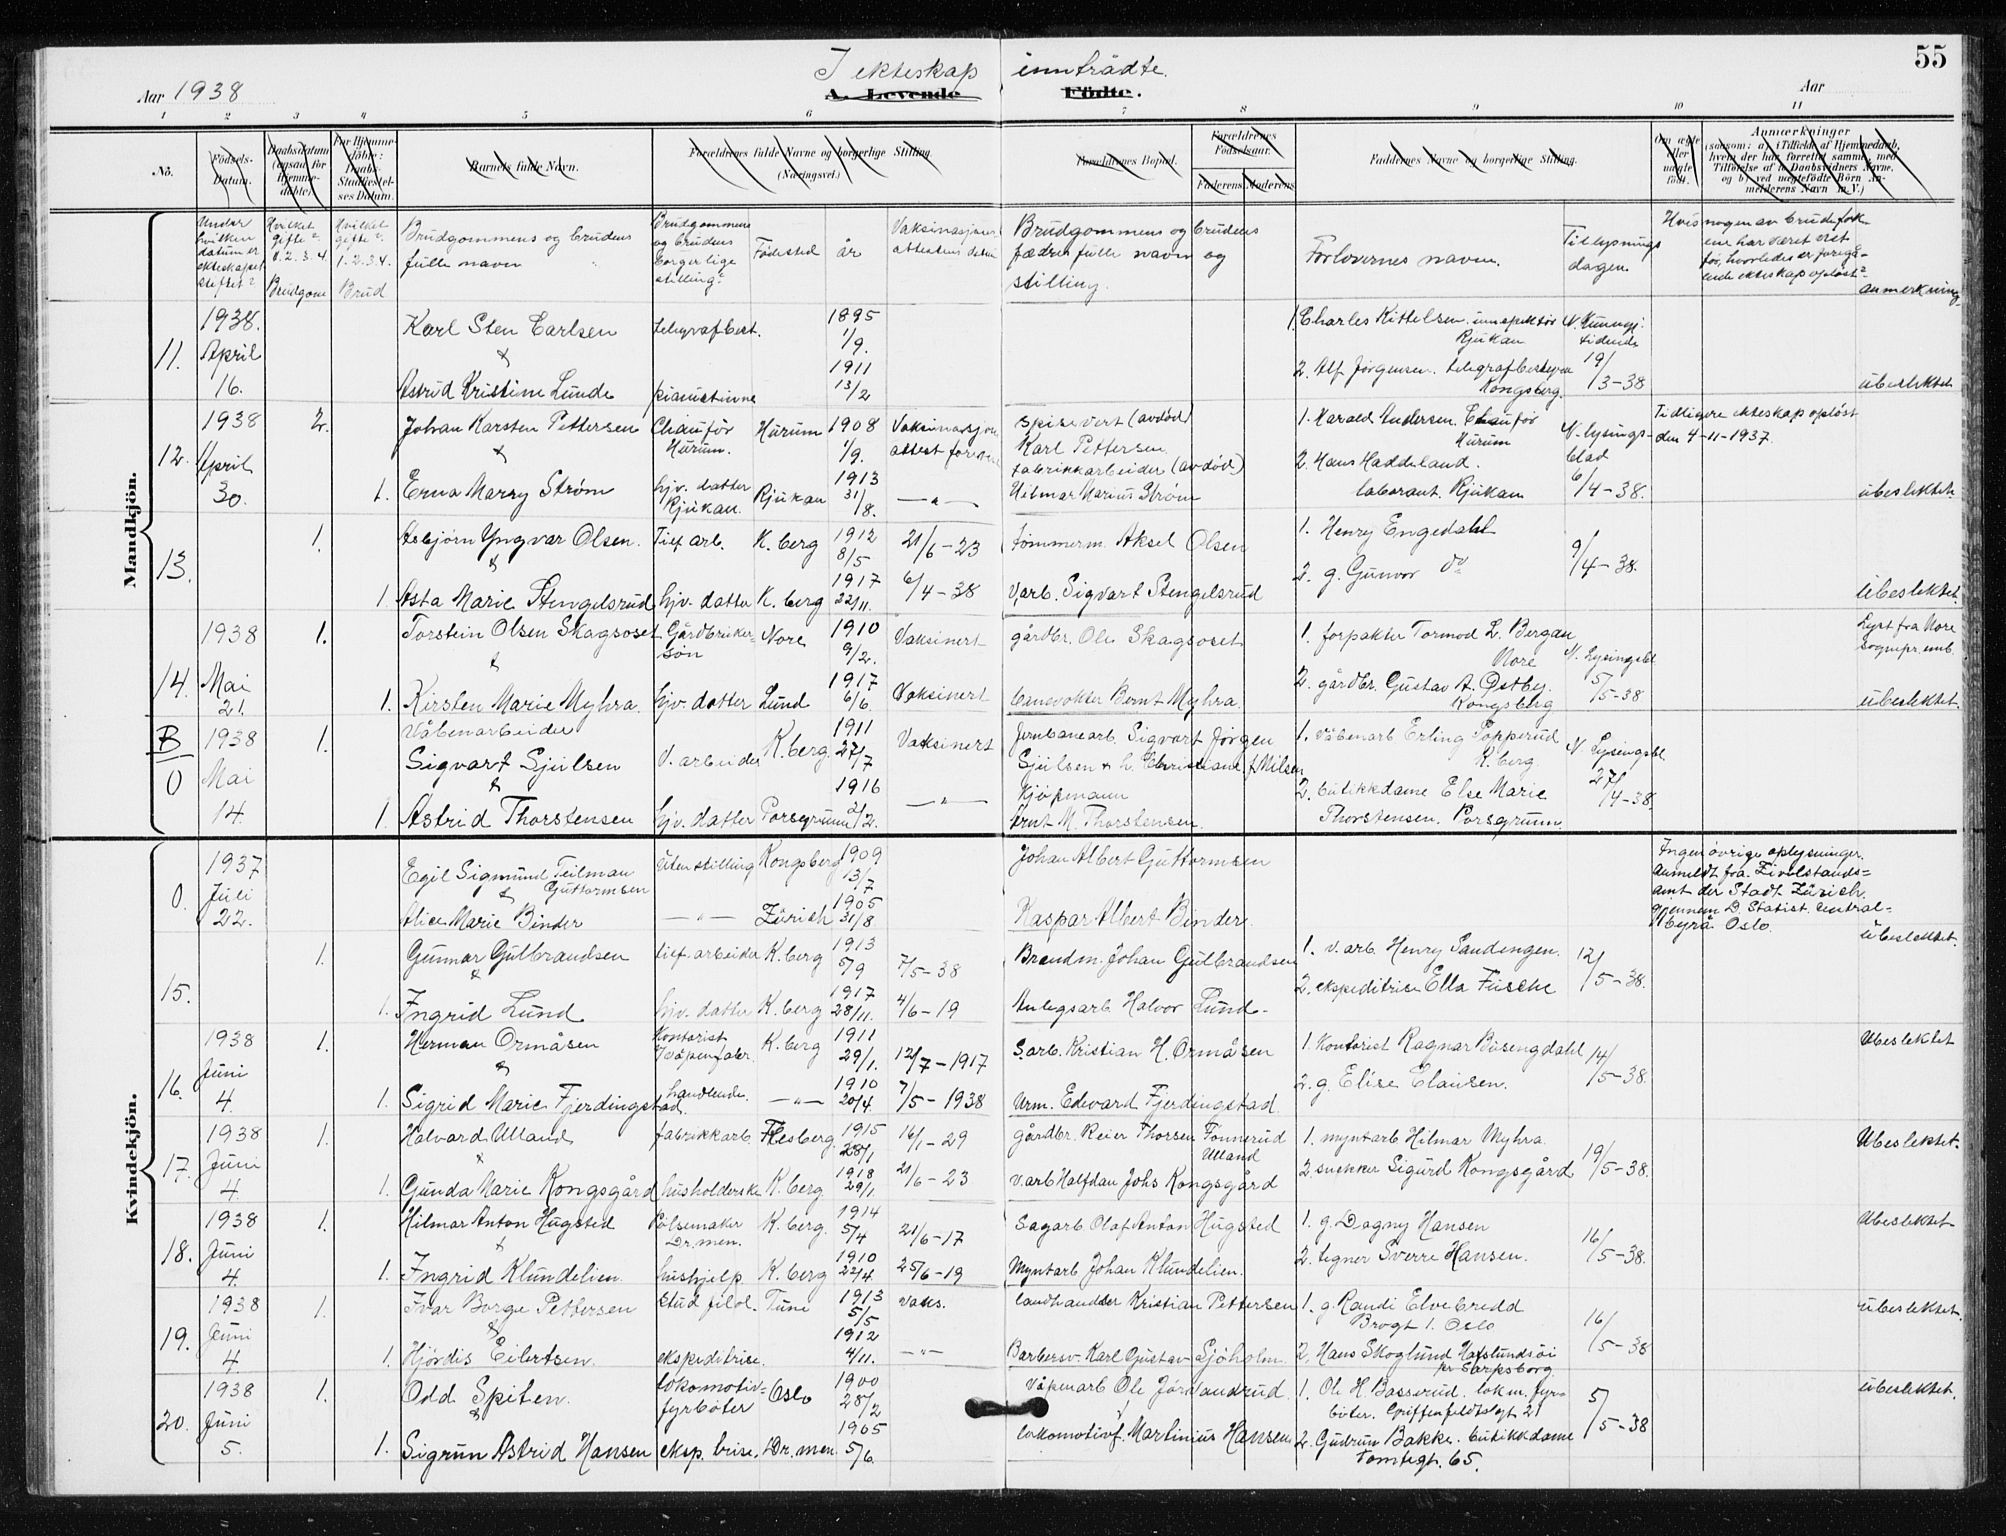 55
Aar 1938
I ekteskap inntrådte.
A. Levende Födte.
Aar
1 2 3 4 5 6 7 8 9 10 11
No.
Födsels-Datum.
Daabsdatum (ogsaa for Hjemmedöbte).
For Hjemmedöbte: Daabs-Stadfæstelses Datum.
Barnets fulde Navn.
Forældrenes fulde Navne og borgerlige Stilling. (Næringsvei.)
Forældrenes Bopæl.
Forældrenes Födselsaar.
Faderens. Moderens.
Faddernes Navne og borgerlige Stilling.
Om ægte eller uægte födt.
Anmærkninger
(saasom: a) i Tilfælde af Hjemmedaab, hvem der har forrettet samme, med Tilföielse af to Daabsvidners Navne, og b) ved uægtefödte Börn Anmelderens Navn m. V.)
Under hvilken datum er ekteskapet stiftet?
Hvilket gifte? 1. 2. 3. 4. Brudgom
Hvilket gifte? 1. 2. 3. 4. Brud
Brudgommens og brudens fulle navn
Brudgommens og brudens borgerlige stilling?
Fødested
år
Vaksinasjonsattestens datum
Brudgommens og brudens fædres fulle navn og stilling.
Forlovernes navn.
Tillysningsdagen.
Hvis nogen av brudefolkene har været gift før, hvorledes er foregående ekteskap opløst?
anmerkning
Mandkjön.
11. 1938. April 16.
Karl Sten Carlsen telegrafbest. 1895 1/9.
&
Astrid Kristine Lunde pianistinne 1911 13/2
1. Charles Kittelsen. inspektør Rjukan
2. Alf Jørgensen. telegrafbestyrer Kongsberg.
N. Kunngj. tidende 19/3-38
ubeslektet
12. 1938 April 30. 2.
Johan Karsten Pettersen Chauför Hurum. Hurum 1908 1/9. Vaksinasjonsattest forevist
&
1. Erna Marry Strøm hjv. datter Rjukan. Rjukan 1913 31/8. —"—
Spisevert (avdød) Karl Pettersen
fabrikkarbeider (avdød) Hilmar Marius Strøm
1. Harald Andersen. Chauför Hurum
2. Hans Haddeland. laborant. Rjukan
N. lysingsblad 6/4-38.
Tidligere ekteskap opløst den 4-11-1937.
ubeslektet.
13. 1.
Asbjørn Yngvar Olsen. Tief arb. K.berg 1912 8/5 21/6-23
&
1. Asta Marie Stengelsrud hjv. datter K.berg 1917 22/11. 6/4-38
tømmerm. Aksel Olsen
v.arb. Sigvart Stengelsrud
1. Henry Engedahl
2. g. Gunvor do
9/4-38.
Ubeslektet.
14. 1938 Mai 21. 1.
Torstein Olsen Skagsoset Gårdbrukersøn Nore 1910 9/2. Vaksinert
&
1. Kirsten Marie Myhra. hjv. datter Lund 1917 6/6. Vaksinert
gårdbr. Ole Skagsoset
banevokter Bernt Myhra.
1. forpakter Tormod L. Bergan Nore
2. gårdbr. Gustav A. Østby. Kongsberg
N. Lysingsbl. 5/5-38
Lyst fra Nore sognepr.emb.
ubeslektet.
B 0 1938 Mai 14. 1.
Våbenarbeider
Sigvart Sjulsen V. arbeider K.berg. 1911 27/7 Vaksinert
&
1. Astrid Thorstensen hjv. datter Porsgrunn 1916 2/2. —"—
Jernbanearb. Sigvart Jørgen Sjulsen & h. Christiane f Nilsen
Kjøpmann Arnt M. Thorstensen.
1. Våbenarb Erling Popperud K.berg.
2. butikkdame Else Marie Thorstensen. Porsgrunn.
N. Lysingsbl. 27/4-38
Kvindekjön.
0. 1937 Juli 22.
Egil Sigmund Teilman Guttormsen Uten stilling Kongsberg 1909 13/7
&
Alice Marie Binder —"— Zürich 1905 31/8
Johan Albert Guttormsen
Kaspar Albert Binder.
Ingen øvrige oplysninger. Anmeldt fra Zivilstandsamt der Stadt Zürich gjennem D. Statist. Centralbyrå Oslo.
ubeslektet.
15. 1.
Gunnar Gulbrandsen tief. arbeider K.berg 1913 5/9 7/5-38
&
1. Ingrid Lund hjv. datter K.berg 1917 28/11. 4/6-19
Brandm. Johan Gulbrandsen
Anlegsarb. Halvor Lund.
1. v. arb. Henry Sandengen.
2. ekspeditrise Ella Fusche
12/5-38.
16. 1938 Juni 4. 1.
Herman Ormåsen Kontorist v/våpenfabr. K.berg 1911 29/1. 12/7-1917
&
1. Sigrid Marie Fjerdingstad. handlende. —"— 1910 20/4 7/5-1938
S.arb. Kristian H. Ormåsen
Urm. Edevard Fjerdingstad.
1. Kontorist Ragnar Busengdahl
2. g. Elise Clausen.
14/5-38.
Ubeslektet
17. 1938 Juni 4. 1.
Halvard Ulland fabrikkarb. Flesberg. 1915 28/1 16/1-29
&
1. Gunda Marie Kongsgård husholderske K.berg. 1918 29/1. 21/6-23
gårdbr. Reier Thorsen Fonnerud Ulland
v.arb Halfdan Johs Kongsgård
1. myntarb Hilmar Myhra.
2. snekker Sigurd Kongsgård
19/5-38.
Ubeslektet.
18. 1938 Juni 4. 1.
Hilmar Anton Hugsted Pølsemaker Dr.men. K.berg. 1914 5/4 21/6-17
&
1. Ingrid Klundelien. hushjelp K.berg 1910 22/4. 25/6-19
Sagarb Olaf Anton Hugsted
Myntarb Johan Klundelien.
1. g. Dagny Hansen
2. tegner Sverre Hansen.
16/5-38.
Ubeslektet
19. 1938 Juni 4. 1.
Ivar Borge Pettersen Stud filol. Tune 1913 5/5 vaks.
&
1. Hjørdis Eilertsen. ekspeditrise. 1912 4/11. —"—
landhandler Kristian Pettersen
Barbersv. Karl Gustav Sjöholm.
1. g. Randi Elvebredd Brogt 1. Oslo
2. Hans Skoglund Hafslundsøi pr Sarpsborg.
16/5-38
ubeslektet.
20. 1938 Juni 5. 1.
Odd Spiten. lokomotivfyrbøter Oslo 1900 28/2
&
1. Sigrun Astrid Hansen eksp. trise. Dr.men. 1905 5/6
Våpenarb Ole Jørandrud.
lokomotivf. Martinius Hansen
1. Ole H. Basserud. lokm. fyrbøter. Griffenfeldtsgt 21
2. Gudrun Bakke. butikkdame Tomtegt. 65.
5/5-38
ubeslektet.